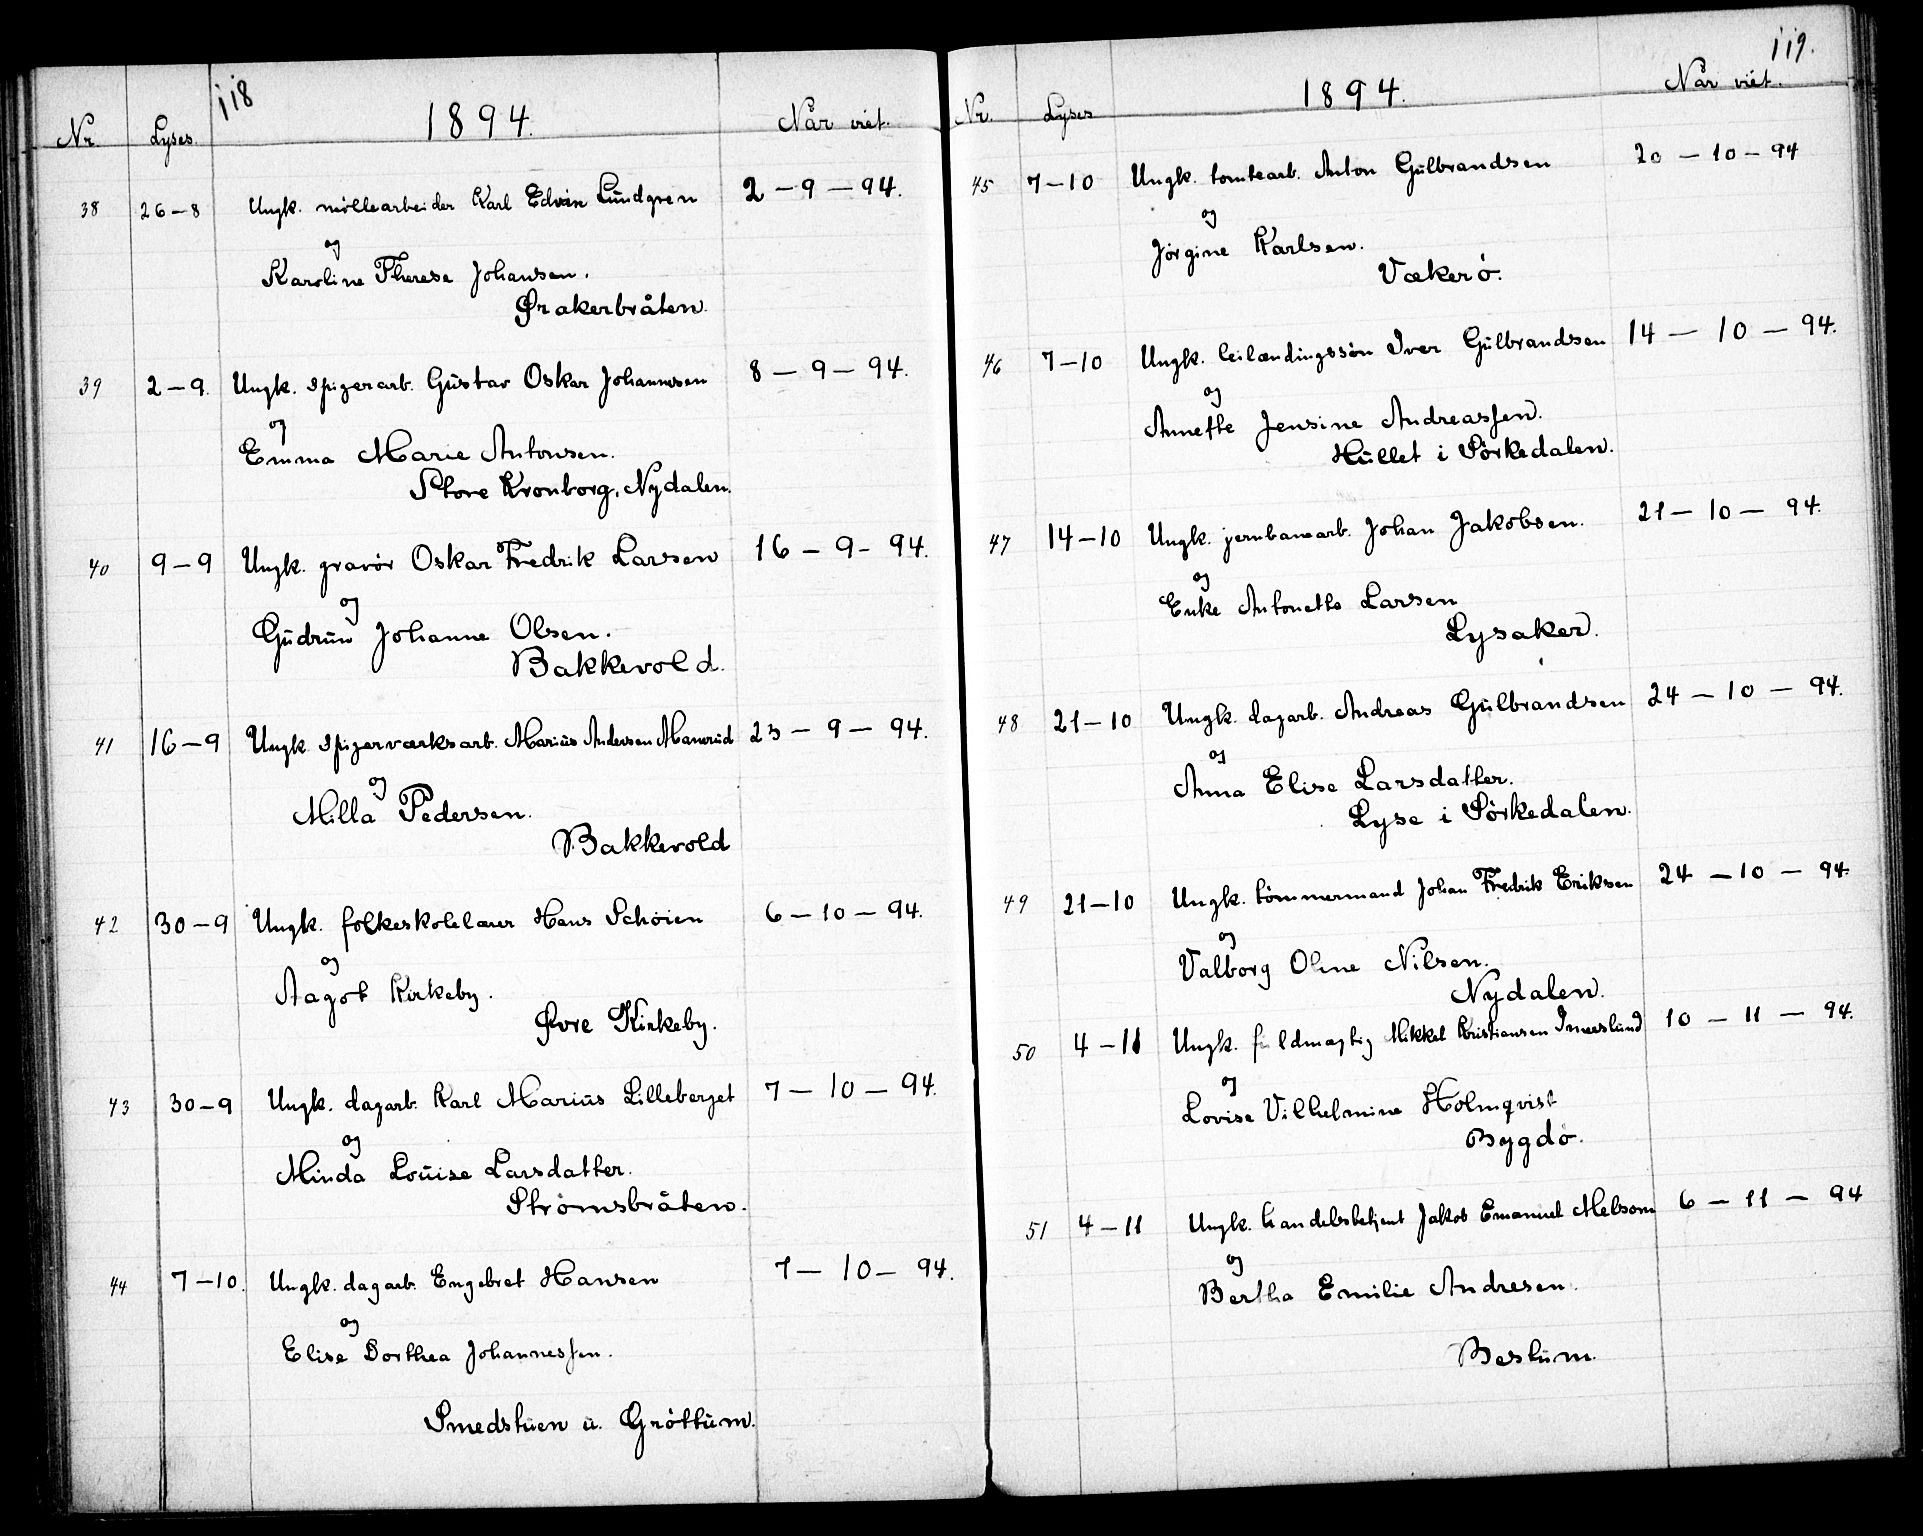 118
Nr. Lyses. 1894. Når viet.
38 26-8 Ungk. møllearbeider Karl Edvin Lundgren 2-9-94.
og
Karoline Therese Johansen.
Ørakerbråten.
39 2-9. Ungk. spigerarb. Gustav Oskar Johannesen 8-9-94.
og
Emma Marie Antonsen.
Store Kronborg, Nydalen.
40 9-9 Ungk. gravør Oskar Fredrik Larsen 16-9-94.
og
Gudrun Johanne Olsen.
Bakkevold.
41 16-9 Ungk. spigerværksarb. Marius Andersen Manerud 23-9-94.
og
Milla Pedersen.
Bakkevold
42 30-9 Ungk. folkeskolelærer Hans Schøien 6-10-94.
og
Aagot Kirkeby.
Øvre Kirkeby.
43 30-9 Ungk. dagarb. Karl Marius Lilleberget 7-10-94.
og
Minda Louise Larsdatter.
Strømsbråten.
44 7-10. Ungk. dagarb. Engebret Hansen 7-10-94.
og
Elise Dorthea Johannessen.
Smedstuen u. Grøttum.
119.
Nr. Lyses 1894. Når viet.
45 7-10 Ungk. tomtearb. Anton Gulbrandsen 20-10-94
og
Jørgine Karlsen.
Vækerø.
46 7-10 Ungk. leilændingssøn Iver Gulbrandsen 14-10-94.
og
Annette Jensine Andreassen.
Hullet i Sørkedalen.
47 14-10 Ungk. jernbanearb. Johan Jakobsen. 21-10-94.
og
Enke Antonette Larsen
Lysaker.
48 21-10 Ungk. dagarb. Andreas Gulbrandsen 24-10-94.
og
Anna Elise Larsdatter.
Lyse i Sørkedalen.
49 21-10 Ungk. tømmermand Johan Fredrik Eriksen 24-10-94.
og
Valborg Oline Nilsen.
Nydalen.
50 4-11 Ungk. fuldmægtig Mikkel Kristiansen Imerslund 10-11-94.
og
Lovise Vilhelmine Holmqvist
Bygdø.
51 4-11 Ungk. handelsbetjent Jakob Emanuel Melsom 6-11-94
og
Bertha Emilie Andresen.
Bestum.